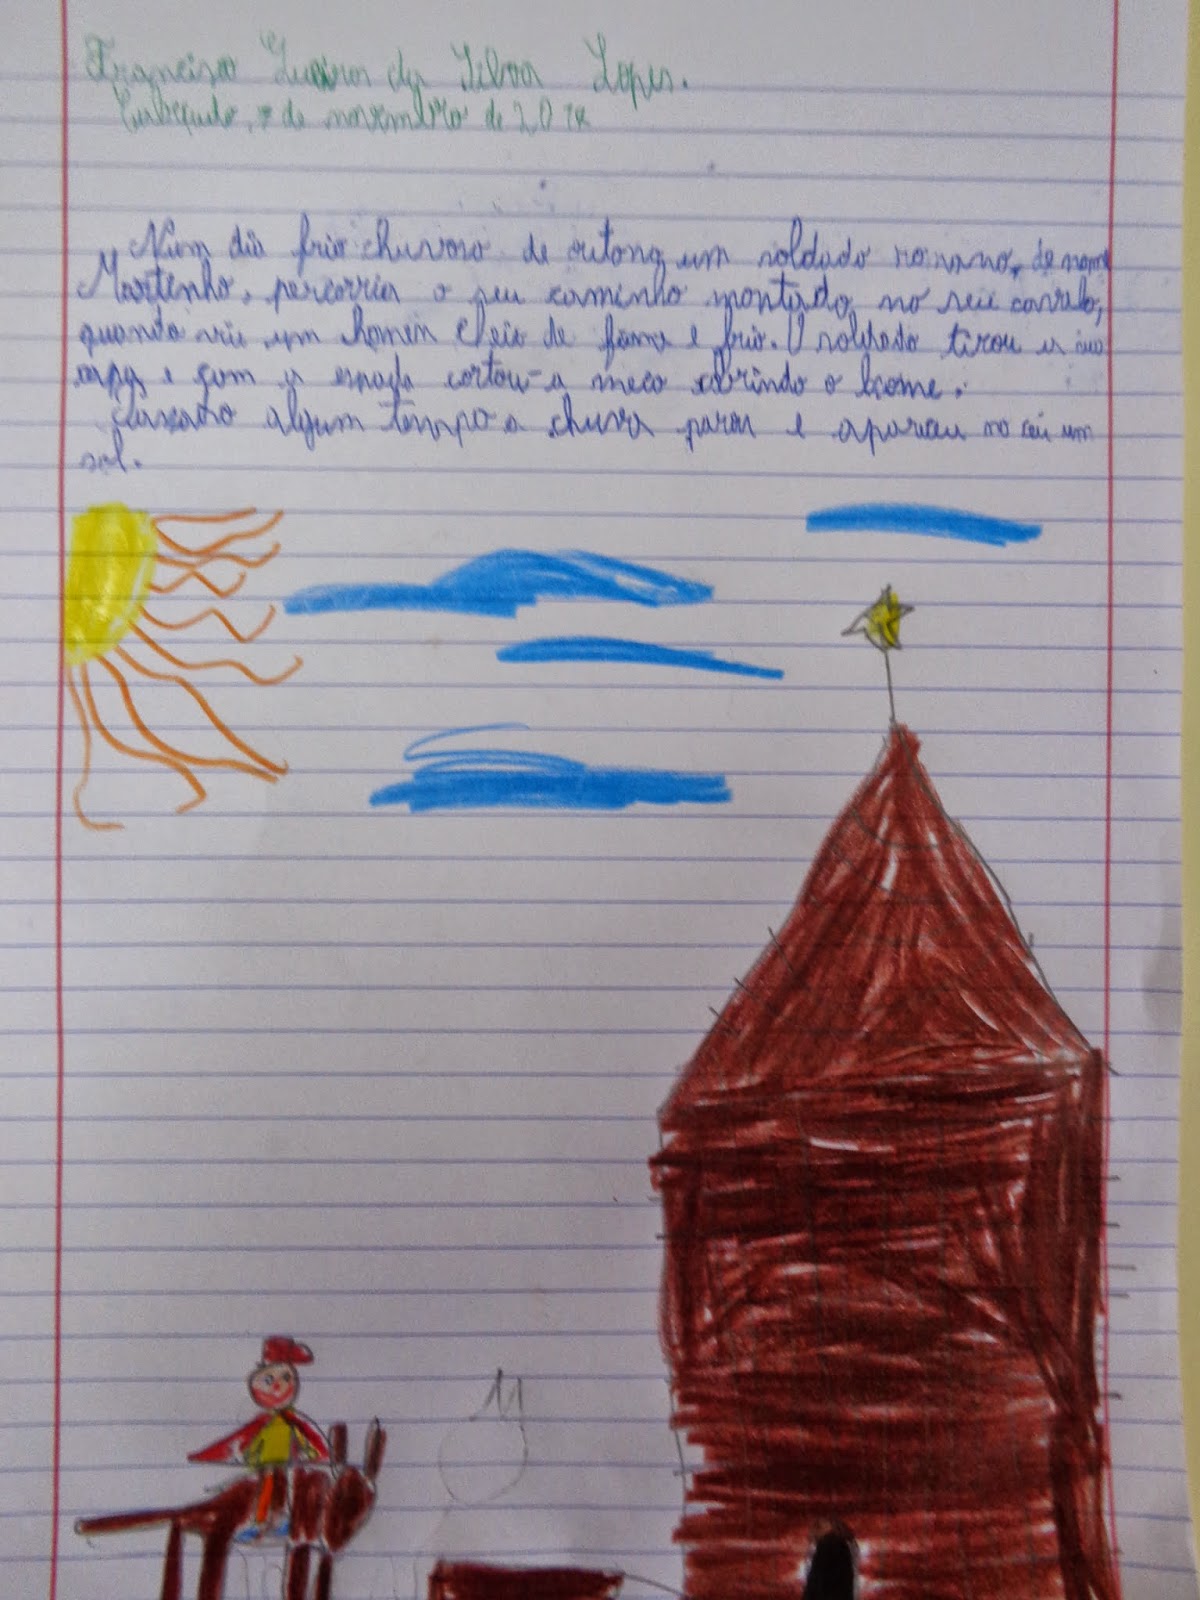 Francisco da Silva Lopes.
de novembro de 2014
Num dia frio chuvoso de outono um soldado romano, de nome
Martinho, percorria o seu caminho montado no seu cavalo,
quando viu um homem cheio de fome e frio. O soldado tirou a sua
capa e com a espada cortou-a meio cobrindo o home.
Passado algum tempo a chuva parou e apareceu no céu um
sol.